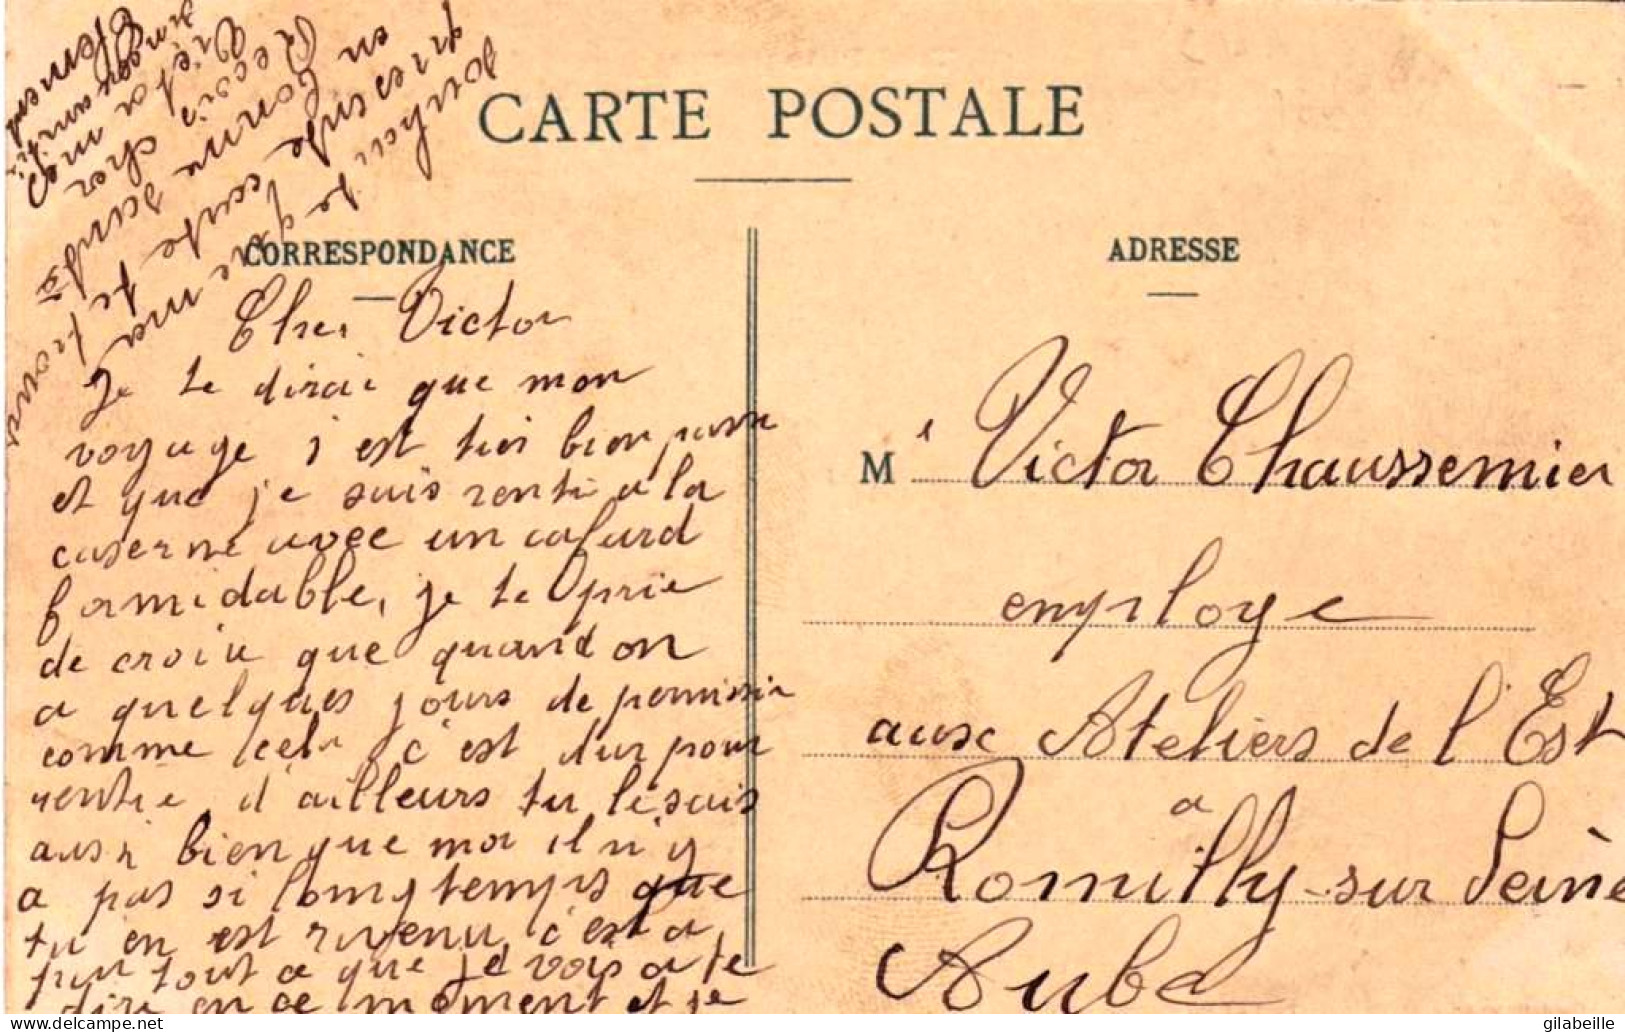 CARTE POSTALE
CORRESPONDANCE
Cher Victor
Je te dirai que mon
voyage s est tres bien passe
et que je suis rentre a la
caserne avec un cafard
formidable, je te prie
de croire que quand on
a quelques jours de permission
comme cela c'est dur pour
rentre d'ailleurs tu le sais
aussi bien que moi il n'y
a pas si longtemps que
tu en est revenu, c'est a
peu tout ce que je vois a te
dire en ce moment et je
souhaite que ma
presente carte te trouve
en bonne sante
Reçois cher
Victor mes
amitiés
ADRESSE
M r Victor Chaussemier
employe
aux Ateliers de l'Est
a
Romilly-sur Seine
Aube
gilabeille